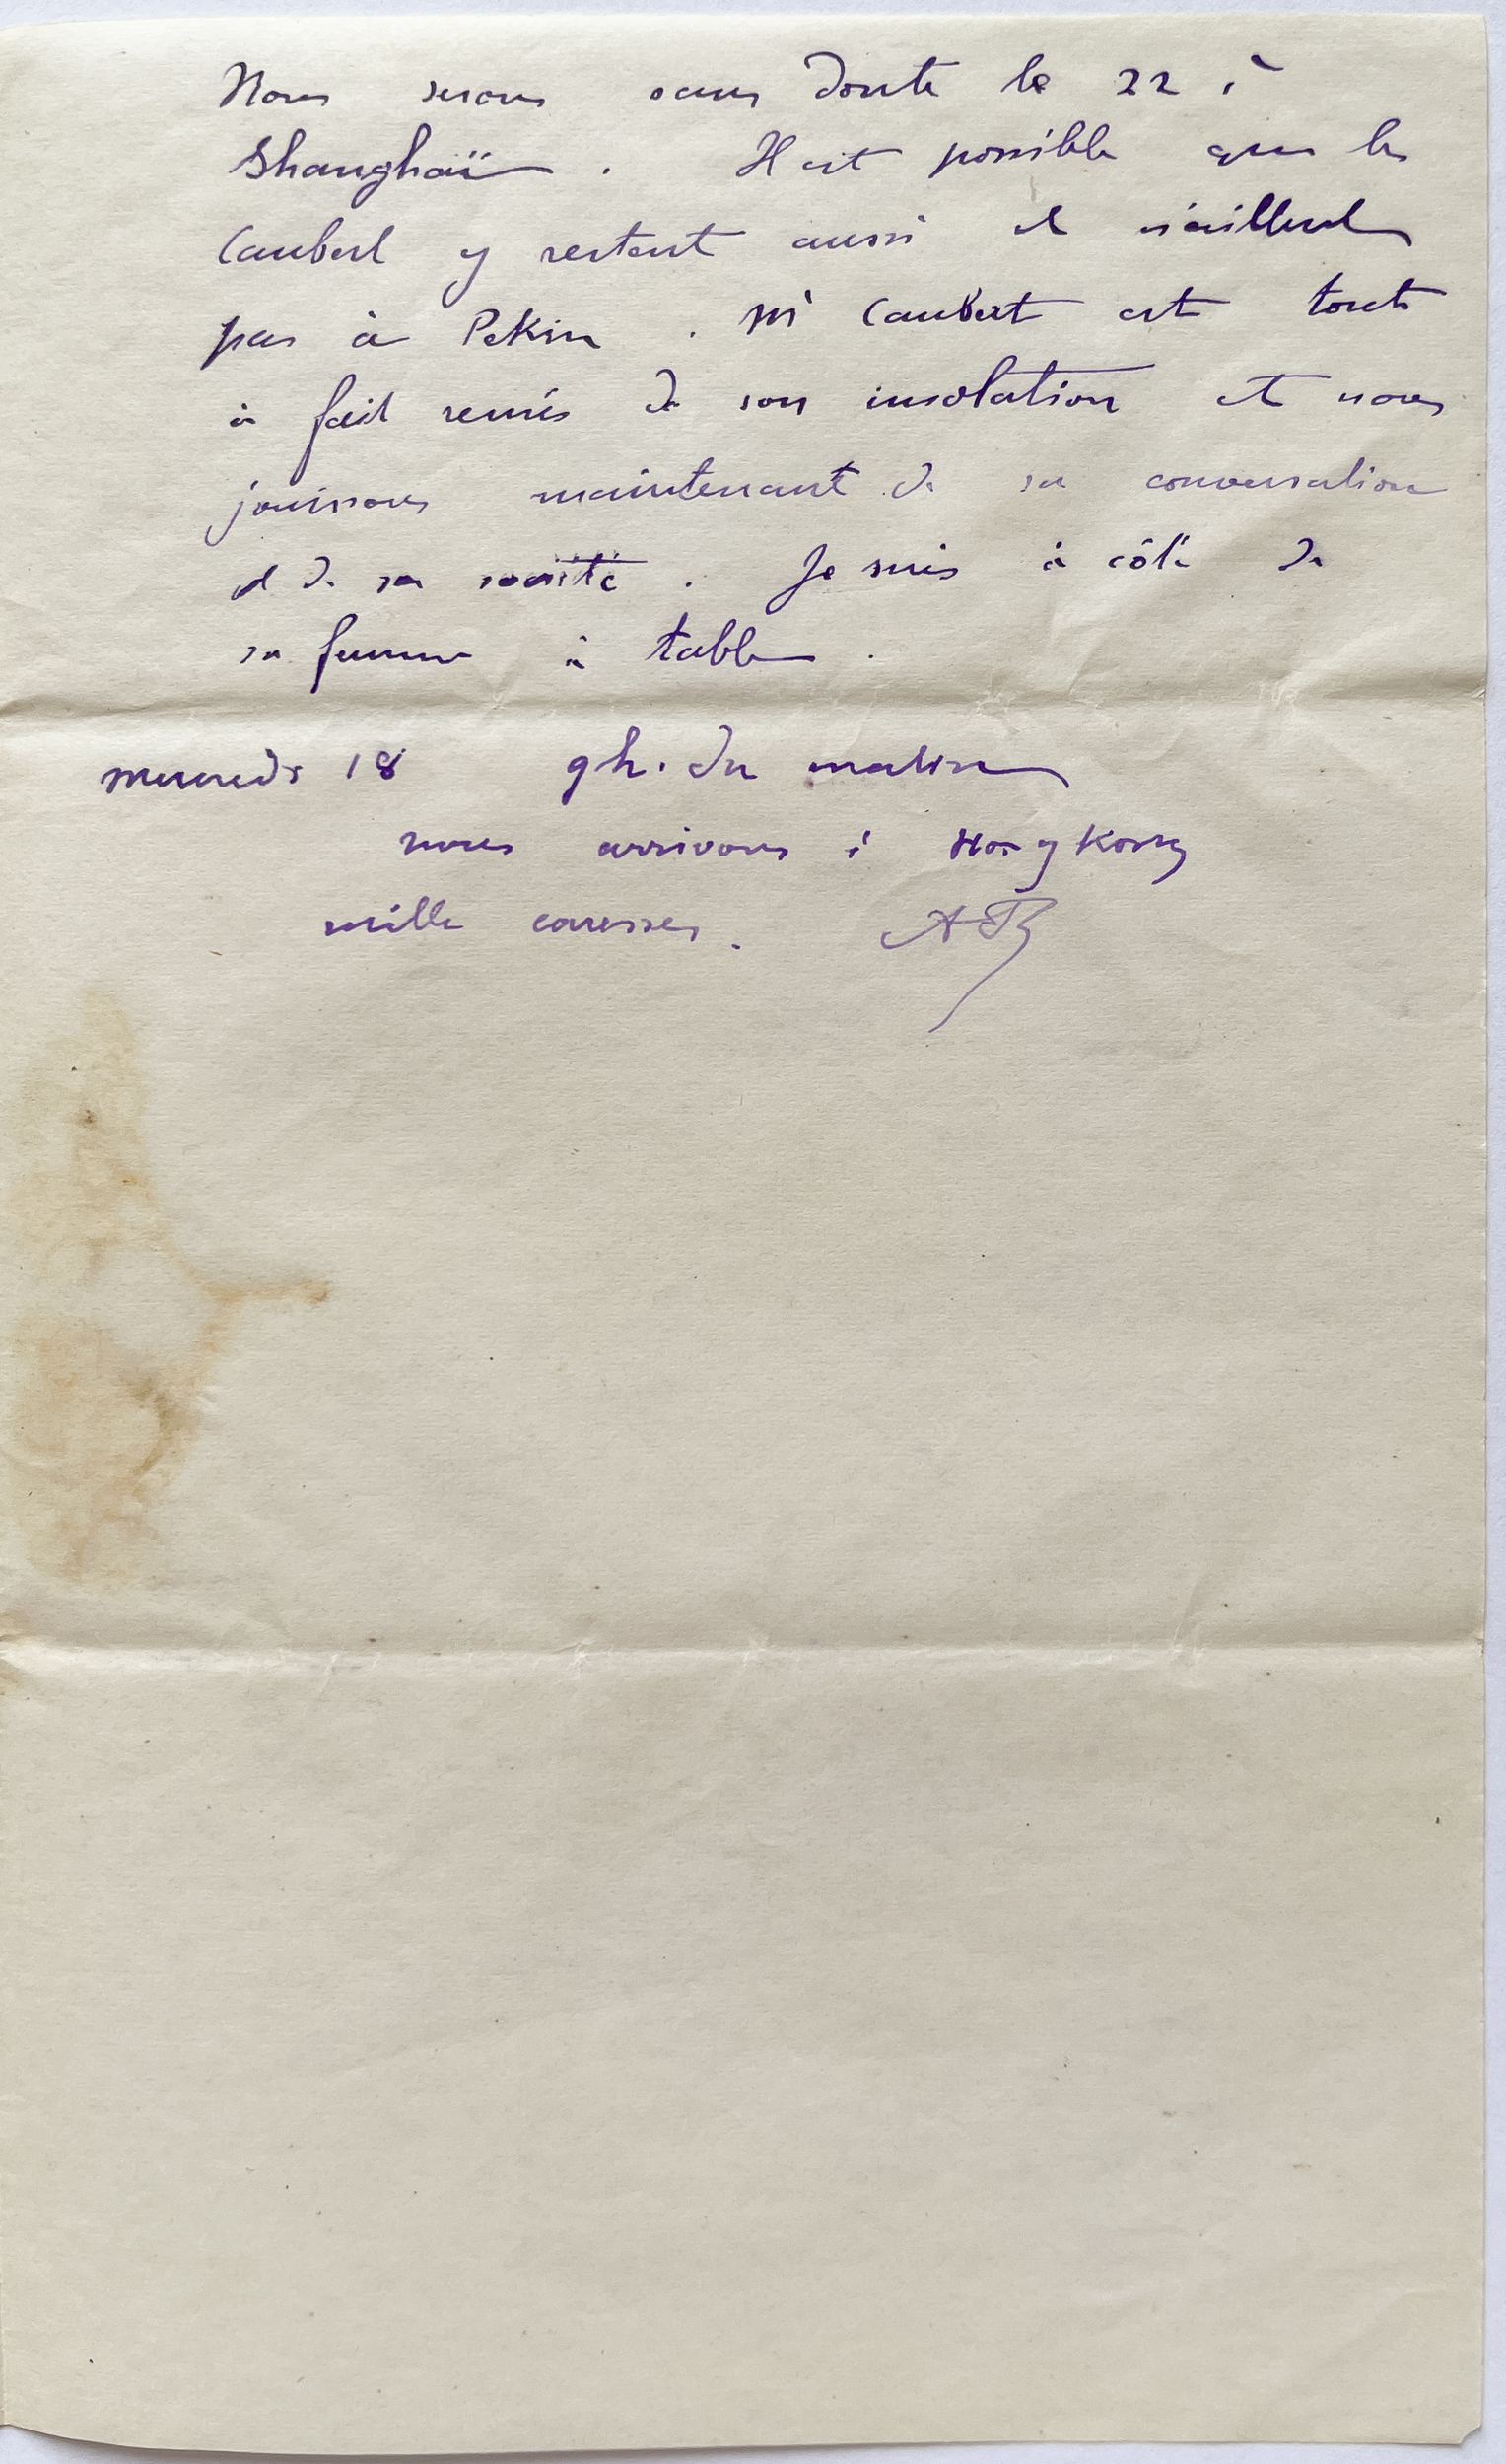 Nous serons sans doute le 22 à
Shanghaï. Il est possible que les
Caubert y restent aussi et n'aillent
pas à Pekin. Mr Caubert est tout
à fait remis de son insolation et nous
jouissons maintenant de sa conversation
et de sa société. Je suis à côté de
sa femme à table.
mercredi 18 9h. du matin
nous arrivons à Hong Kong
mille caresses. AB